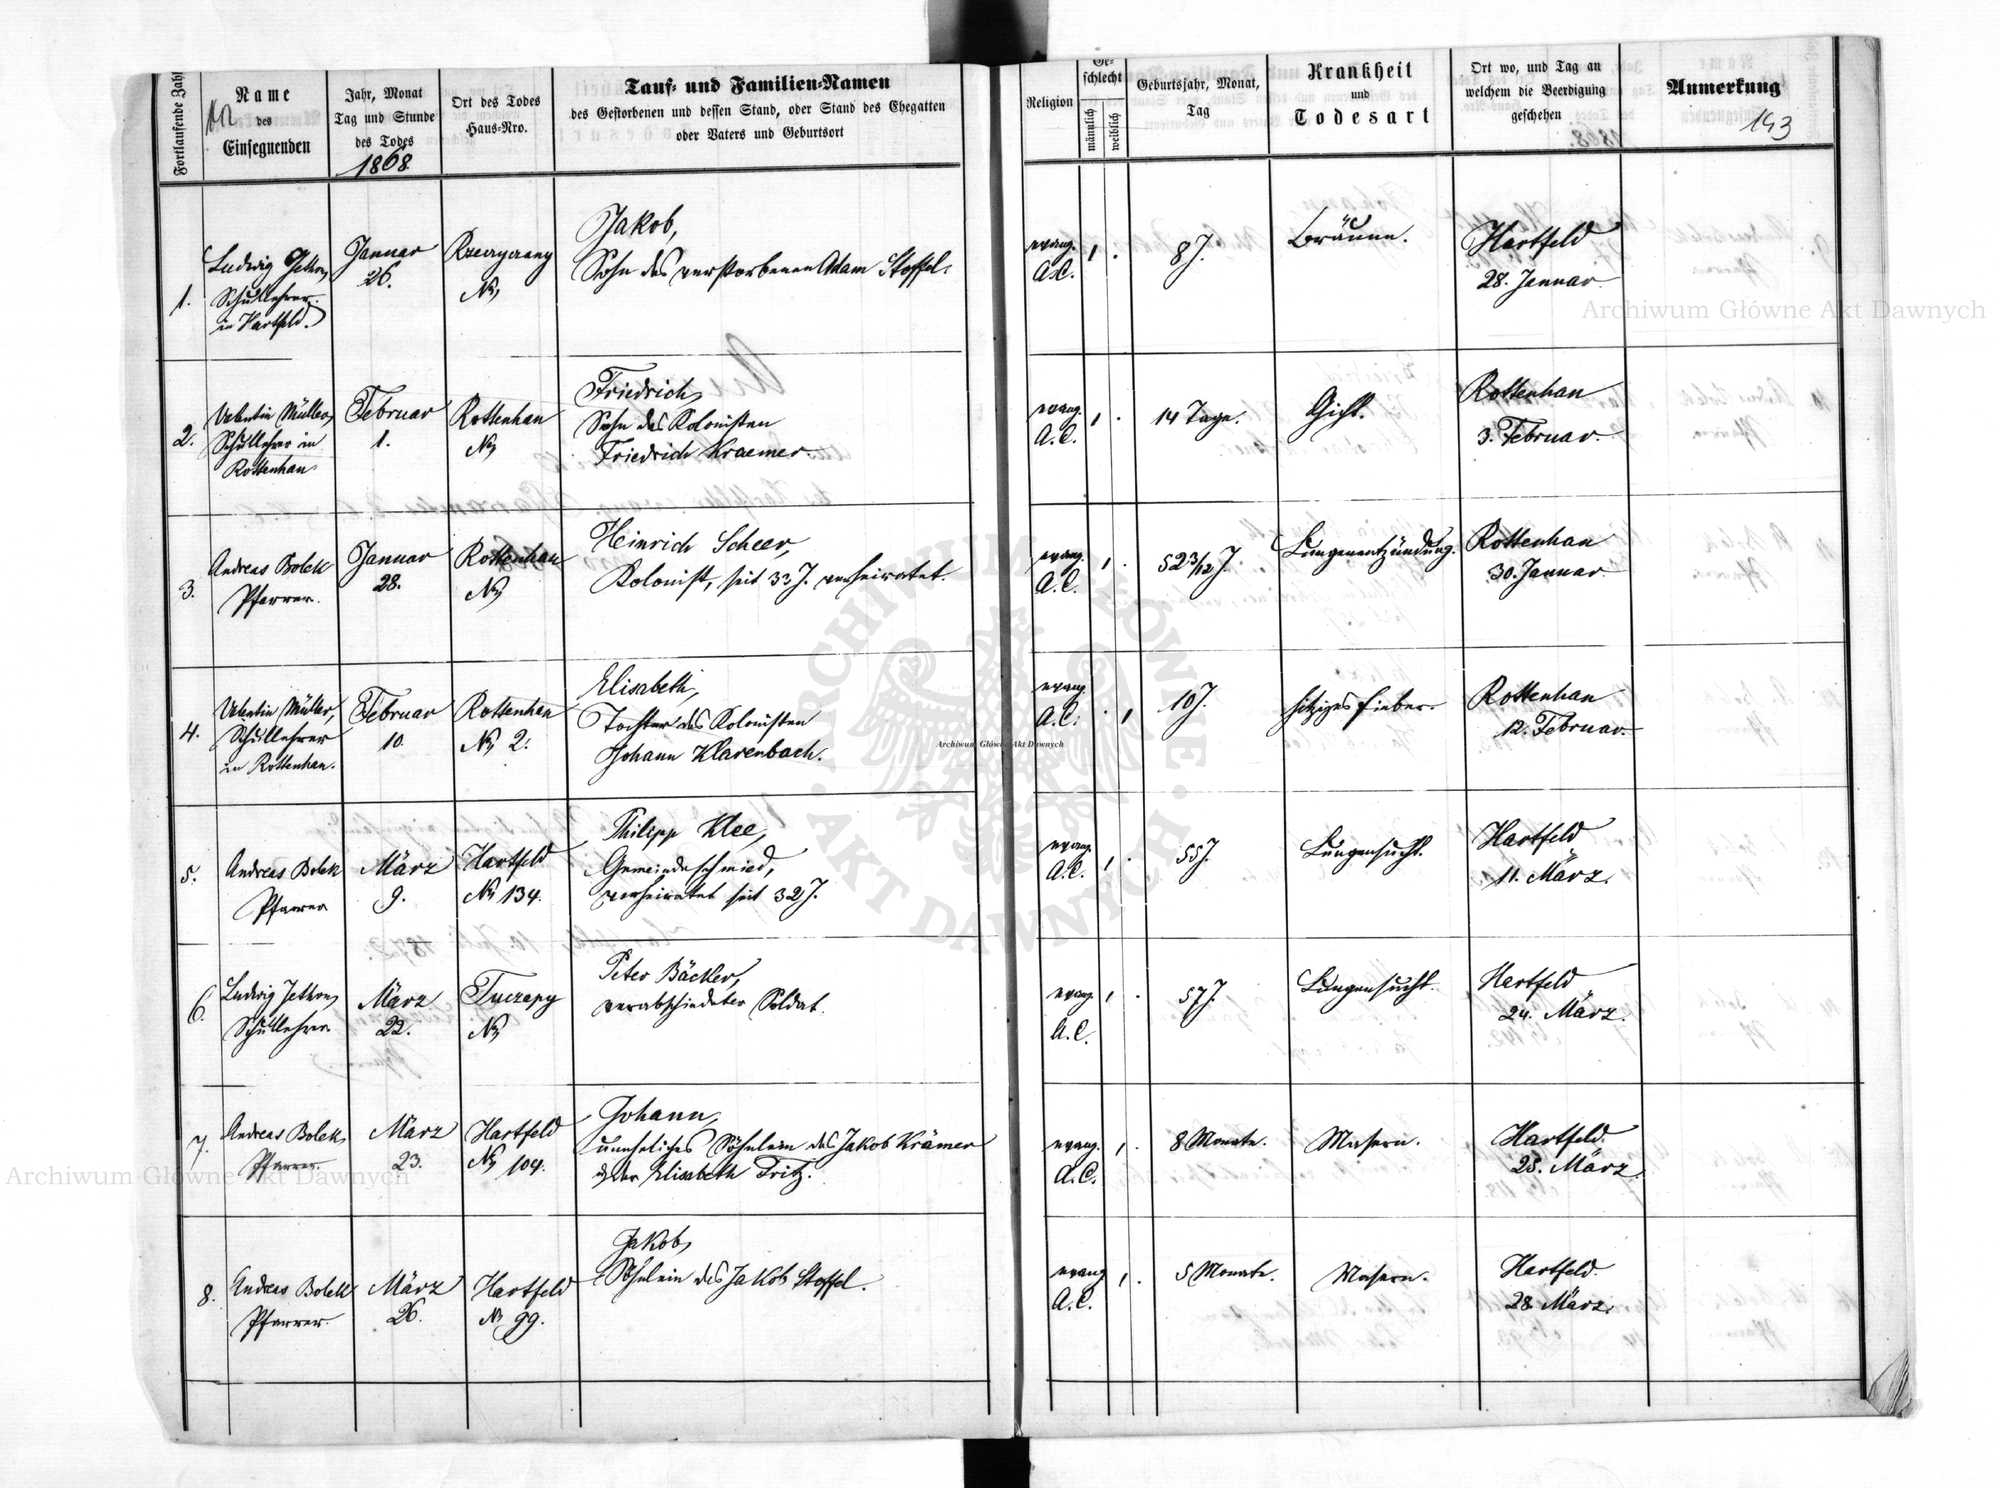 Fortlaufende Zahl
Name
des
Einsegnenden
Jahr, Monat
Tag und Stunde
des Todes
1868.
Ort des Todes
Haus-Nro.
Tauf- und Familien-Namen
des Gestorbenen und dessen Stand, oder Stand des Ehegatten
oder Vaters und Geburtsort
Religion
Ge-
schlecht
männlich
weiblich
Geburtsjahr, Monat,
Tag
Krankheit
und
Todesart
Ort wo, und Tag an
welchem die Beerdigung
geschehen
Anmerkung
143
1.
Ludwig
Schullehrer
in Hartfeld.
Januar
26.
No
Jakob,
Sohn des verstorbenen Adam Stoffel.
evang.
A.C.
1
8 J.
Bräune.
Hartfeld
28. Januar
2.
Valentin Müller,
Schullehrer in
Rottenhan
Februar
1.
Rottenhan
No
Friedrich,
Sohn des Kolonisten
Friedrich Kraemer.
evang.
A.C.
1
14 Tage.
Gicht.
Rottenhan
3. Februar.
3.
Andreas Bolek
Pfarrer.
Januar
28.
Rottenhan
No
Heinrich Scheer,
Kolonist, seit 33 J. verheiratet.
evang.
A.C.
1
52 3/12 J.
Lungenentzündung.
Rottenhan
30. Januar.
4.
Valentin Müller,
Schullehrer
in Rottenhan.
Februar
10.
Rottenhan
No 2.
Elisabeth,
Tochter des Kolonisten
Johann Klarenbach.
evang.
A.C.
1
10 J.
hitziges Fieber.
Rottenhan
12. Februar.
5.
Andreas Bolek
Pfarrer
März
9.
Hartfeld
No 134.
Philipp Klee,
Gemeindeschmied,
verheiratet seit 32 J.
evang.
A.C.
1
55 J.
Lungensucht.
Hartfeld
11. März.
6.
Ludwig
Schullehrer
März
22.
Tuczapy
No
Peter Bäcker,
verabschiedeter Soldat.
evang.
A.C.
1
57 J.
Lungensucht.
Hartfeld
24. März.
7.
Andreas Bolek,
Pfarrer.
März
23.
Hartfeld
No 104.
Johann,
uneheliches Söhnlein des Jakob Krämer
& der Elisabeth Fritz.
evang.
A.C.
1
8 Monate.
Masern.
Hartfeld.
25. März.
8.
Andreas Bolek
Pfarrer.
März
26.
Hartfeld
No 99.
Jakob,
Söhnlein des Jakob Stoffel.
evang.
A.C.
1
5 Monate.
Masern.
Hartfeld.
28. März.
Archiwum Główne Akt Dawnych
Archiwum Główne Akt Dawnych
Archiwum Główne Akt Dawnych
ARCHIWUM GŁÓWNE · AKT DAWNYCH ·